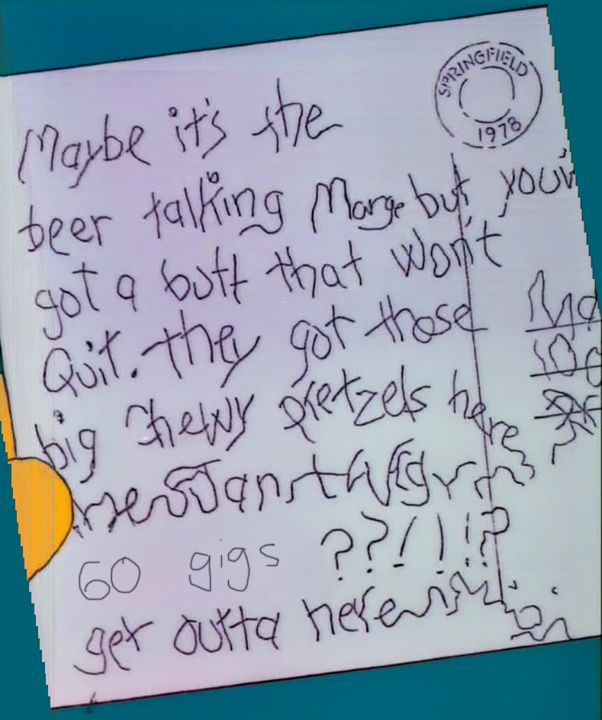 SPRINGFIELD
1978
Maybe it's the
beer talking Marge but you'v
got a butt that won't
Quit. they got those
big chewy pretzels here
60 gigs ??!!!?
get outta here